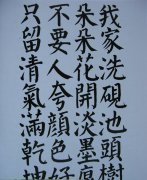 我家洗硯池頭樹
朵朵花開淡墨
不要人夸顏色好
只留清氣滿乾坤